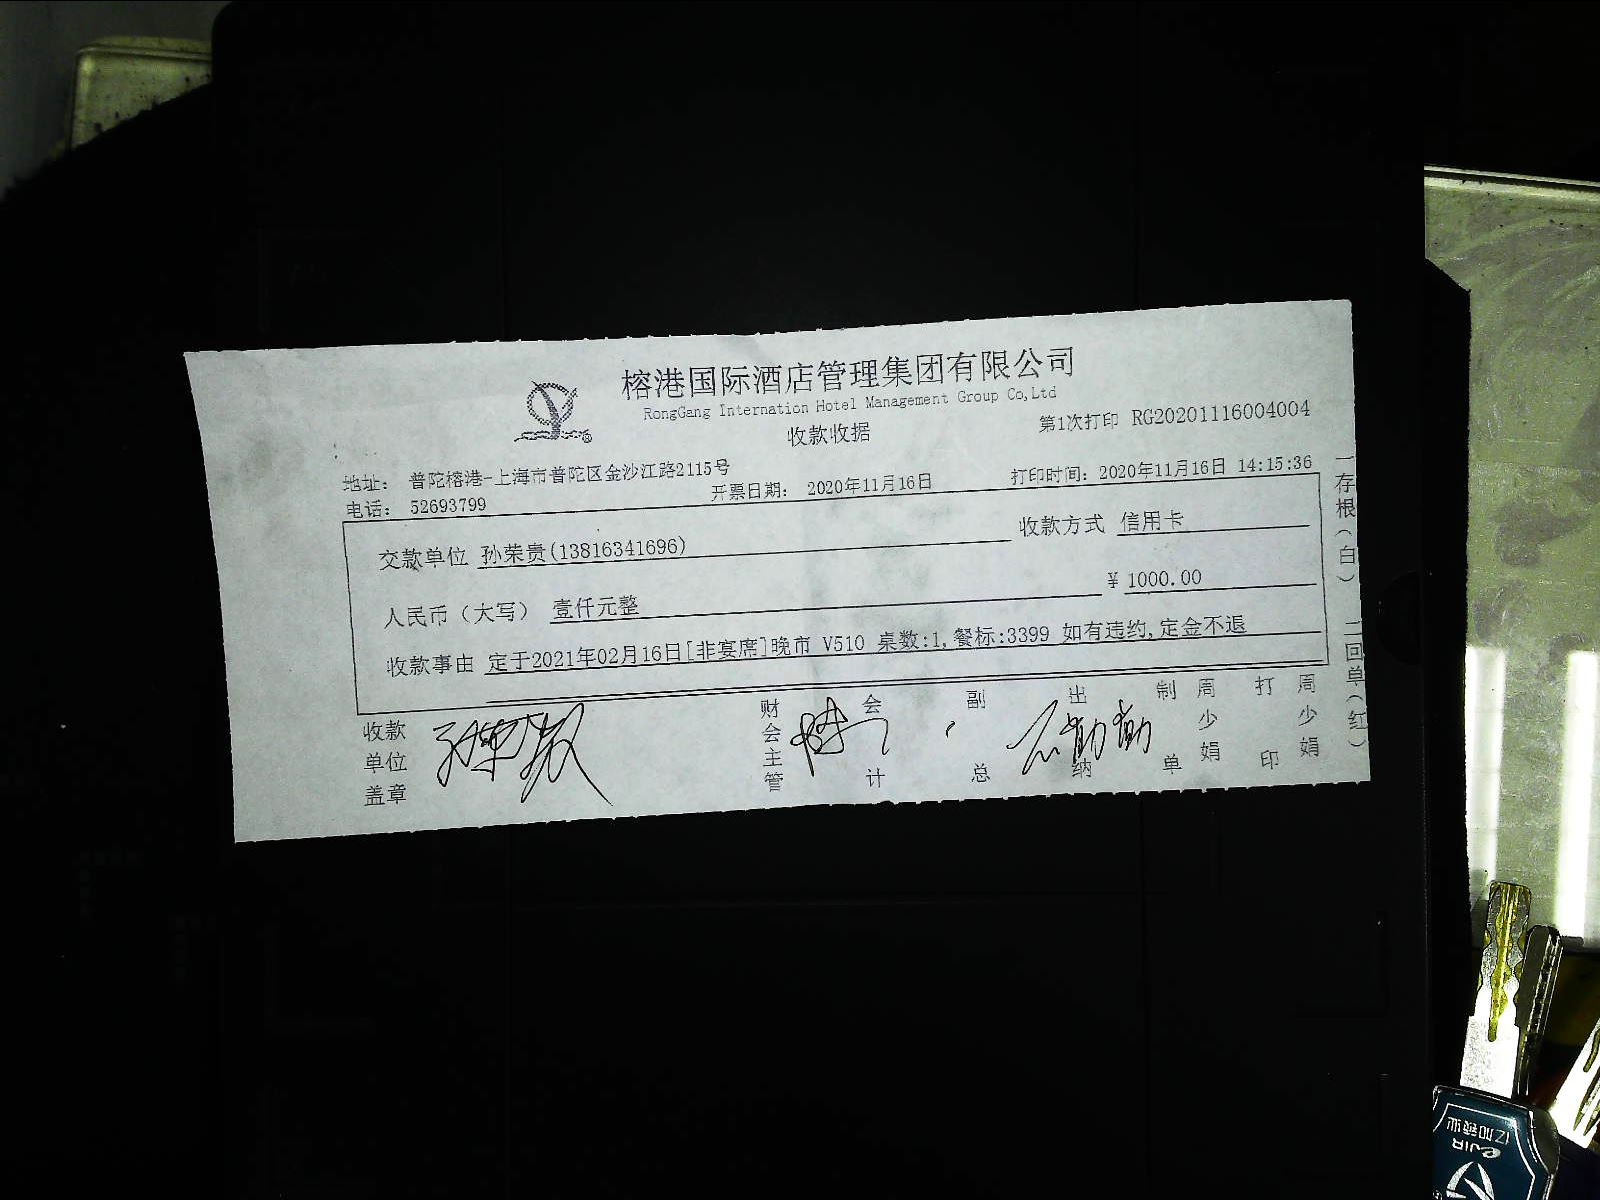 榕港国际酒店管理集团有限公司
RongGang Internation Hotel Management Group Co,Ltd
收款收据
第1次打印 RG20201116004004
地址: 普陀榕港-上海市普陀区金沙江路2115号
电话: 52693799
开票日期: 2020年11月16日
打印时间: 2020年11月16日 14:15:36
交款单位 孙荣贵(13816341696)
收款方式 信用卡
人民币（大写） 壹仟元整
¥ 1000.00
收款事由 定于2021年02月16日[非宴席]晚市 V510 桌数:1,餐标:3399 如有违约,定金不退
收款单位盖章
财会主管
会计
副总
出纳
制单 周少娟
打印 周少娟
一存根(白) 二回单(红)
eJIA
亿加锁业